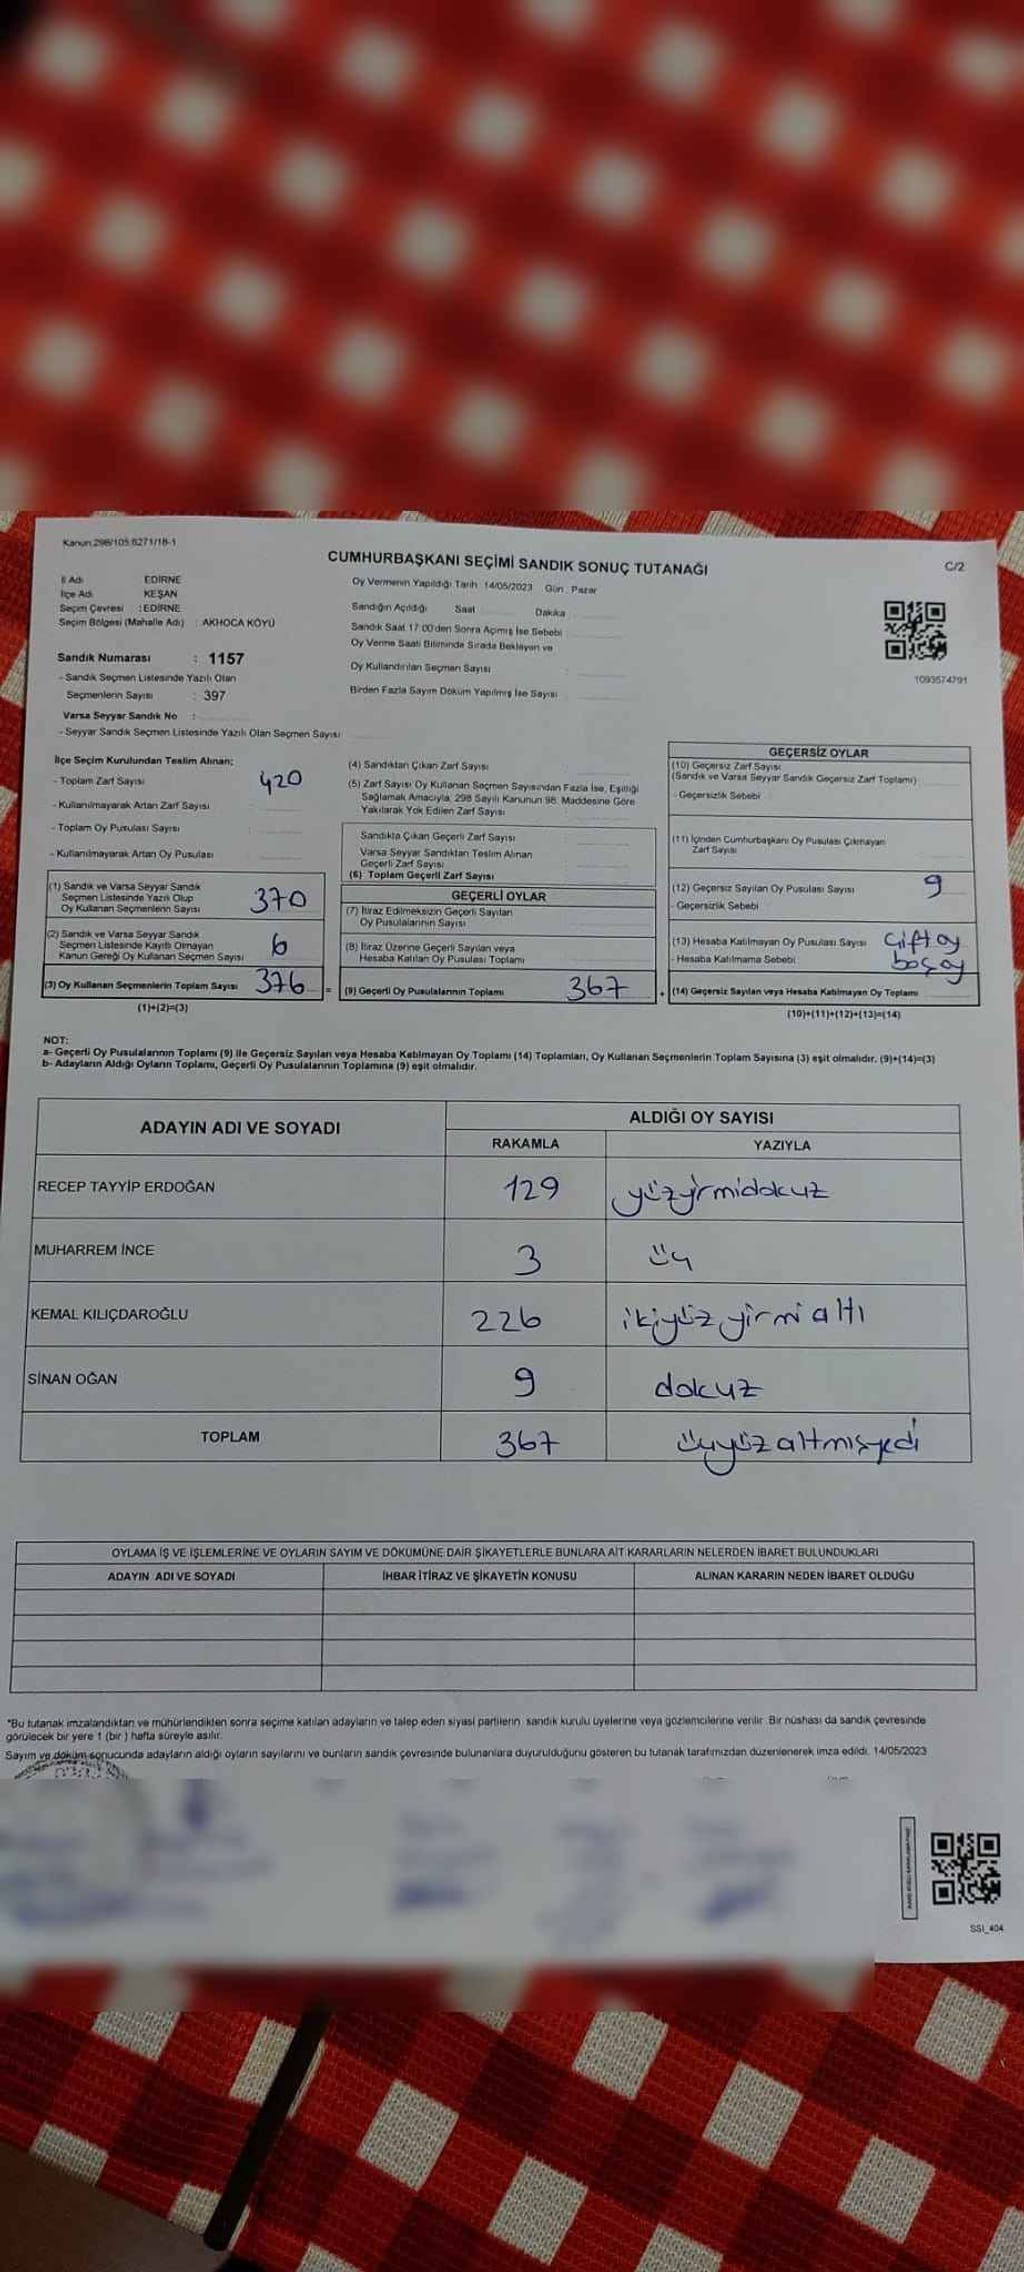 Kanun:298/105.6271/18-1
CUMHURBAŞKANI SEÇİMİ SANDIK SONUÇ TUTANAĞI
C/2
İl Adı EDİRNE
İlçe Adı KEŞAN
Seçim Çevresi : EDİRNE
Seçim Bölgesi (Mahalle Adı) : AKHOCA KÖYÜ
Sandık Numarası : 1157
- Sandık Seçmen Listesinde Yazılı Olan
Seçmenlerin Sayısı : 397
Varsa Seyyar Sandık No :
- Seyyar Sandık Seçmen Listesinde Yazılı Olan Seçmen Sayısı
Oy Vermenin Yapıldığı Tarih 14/05/2023 Gün : Pazar
Sandığın Açıldığı Saat Dakika
Sandık Saat 17:00'den Sonra Açılmış İse Sebebi
Oy Verme Saati Bitiminde Sırada Bekleyen ve
Oy Kullandırılan Seçmen Sayısı
Birden Fazla Sayım Döküm Yapılmış İse Sayısı
1093574791
İlçe Seçim Kurulundan Teslim Alınan;
- Toplam Zarf Sayısı 420
- Kullanılmayarak Artan Zarf Sayısı
- Toplam Oy Pusulası Sayısı
- Kullanılmayarak Artan Oy Pusulası
(1) Sandık ve Varsa Seyyar Sandık
Seçmen Listesinde Yazılı Olup
Oy Kullanan Seçmenlerin Sayısı 370
(2) Sandık ve Varsa Seyyar Sandık
Seçmen Listesinde Kayıtlı Olmayan
Kanun Gereği Oy Kullanan Seçmen Sayısı 6
(3) Oy Kullanan Seçmenlerin Toplam Sayısı 376 =
(1)+(2)=(3)
(4) Sandıktan Çıkan Zarf Sayısı
(5) Zarf Sayısı Oy Kullanan Seçmen Sayısından Fazla İse, Eşitliği
Sağlamak Amacıyla, 298 Sayılı Kanunun 98. Maddesine Göre
Yakılarak Yok Edilen Zarf Sayısı
Sandıkta Çıkan Geçerli Zarf Sayısı
Varsa Seyyar Sandıktan Teslim Alınan
Geçerli Zarf Sayısı
(6) Toplam Geçerli Zarf Sayısı
GEÇERLİ OYLAR
(7) İtiraz Edilmeksizin Geçerli Sayılan
Oy Pusulalarının Sayısı
(8) İtiraz Üzerine Geçerli Sayılan veya
Hesaba Katılan Oy Pusulası Toplamı
(9) Geçerli Oy Pusulalarının Toplamı 367 +
GEÇERSİZ OYLAR
(10) Geçersiz Zarf Sayısı
(Sandık ve Varsa Seyyar Sandık Geçersiz Zarf Toplamı)
- Geçersizlik Sebebi
(11) İçinden Cumhurbaşkanı Oy Pusulası Çıkmayan
Zarf Sayısı
(12) Geçersiz Sayılan Oy Pusulası Sayısı 9
- Geçersizlik Sebebi
(13) Hesaba Katılmayan Oy Pusulası Sayısı çift oy
- Hesaba Katılmama Sebebi boş oy
(14) Geçersiz Sayılan veya Hesaba Katılmayan Oy Toplamı
(10)+(11)+(12)+(13)=(14)
NOT:
a- Geçerli Oy Pusulalarının Toplamı (9) ile Geçersiz Sayılan veya Hesaba Katılmayan Oy Toplamı (14) Toplamları, Oy Kullanan Seçmenlerin Toplam Sayısına (3) eşit olmalıdır. (9)+(14)=(3)
b- Adayların Aldığı Oyların Toplamı, Geçerli Oy Pusulalarının Toplamına (9) eşit olmalıdır.
ADAYIN ADI VE SOYADI ALDIĞI OY SAYISI
RAKAMLA YAZIYLA
RECEP TAYYİP ERDOĞAN 129 yüzyirmidokuz
MUHARREM İNCE 3 üç
KEMAL KILIÇDAROĞLU 226 ikiyüz yirmi altı
SİNAN OĞAN 9 dokuz
TOPLAM 367 üçyüz altmışyedi
OYLAMA İŞ VE İŞLEMLERİNE VE OYLARIN SAYIM VE DÖKÜMÜNE DAİR ŞİKAYETLERLE BUNLARA AİT KARARLARIN NELERDEN İBARET BULUNDUKLARI
ADAYIN ADI VE SOYADI İHBAR İTİRAZ VE ŞİKAYETİN KONUSU ALINAN KARARIN NEDEN İBARET OLDUĞU
*Bu tutanak imzalandıktan ve mühürlendikten sonra seçime katılan adayların ve talep eden siyasi partilerin sandık kurulu üyelerine veya gözlemcilerine verilir. Bir nüshası da sandık çevresinde
görülecek bir yere 1 (bir) hafta süreyle asılır.
Sayım ve döküm sonucunda adayların aldığı oyların sayılarını ve bunların sandık çevresinde bulunanlara duyurulduğunu gösteren bu tutanak tarafımızdan düzenlenerek imza edildi. 14/05/2023
SSI_404